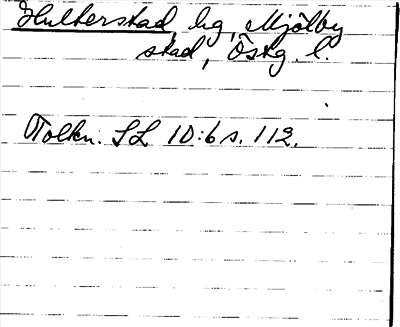 Hulterstad hg, Mjölby
stad, Östg. l.
Tolkn. SL 10:6 s. 112.